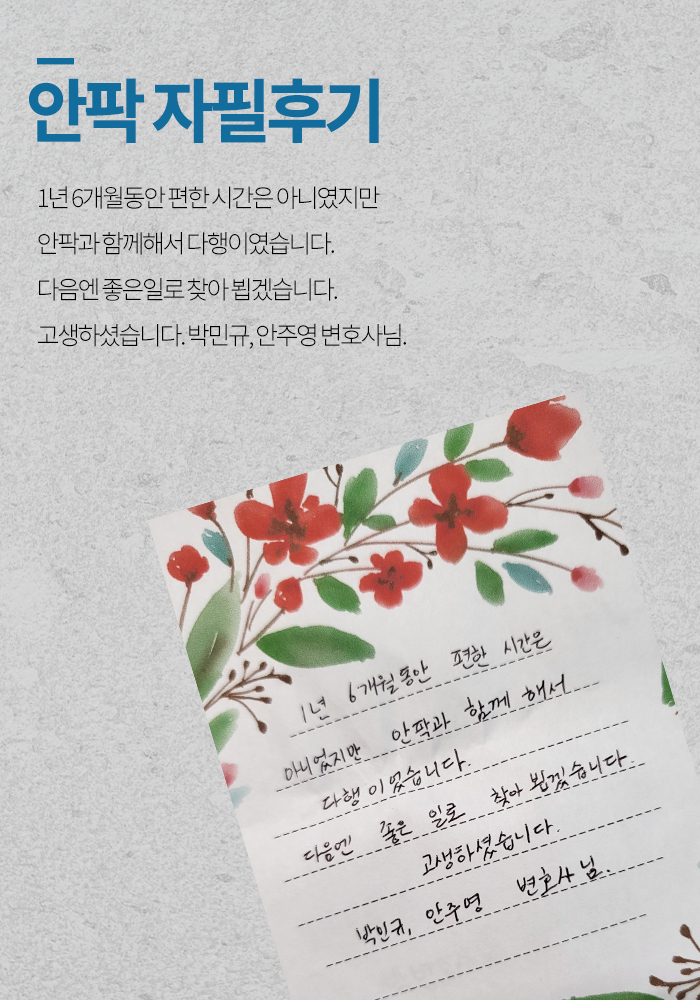 안팍 자필후기
1년 6개월동안 편한 시간은 아니였지만
안팍과 함께해서 다행이였습니다.
다음엔 좋은일로 찾아 뵙겠습니다.
고생하셨습니다. 박민규, 안주영 변호사님.
1년 6개월동안 편한 시간은
아니였지만 안팍과 함께 해서
다행이였습니다.
다음엔 좋은 일로 찾아 뵙겠습니다.
고생하셨습니다.
박민규, 안주영 변호사님.